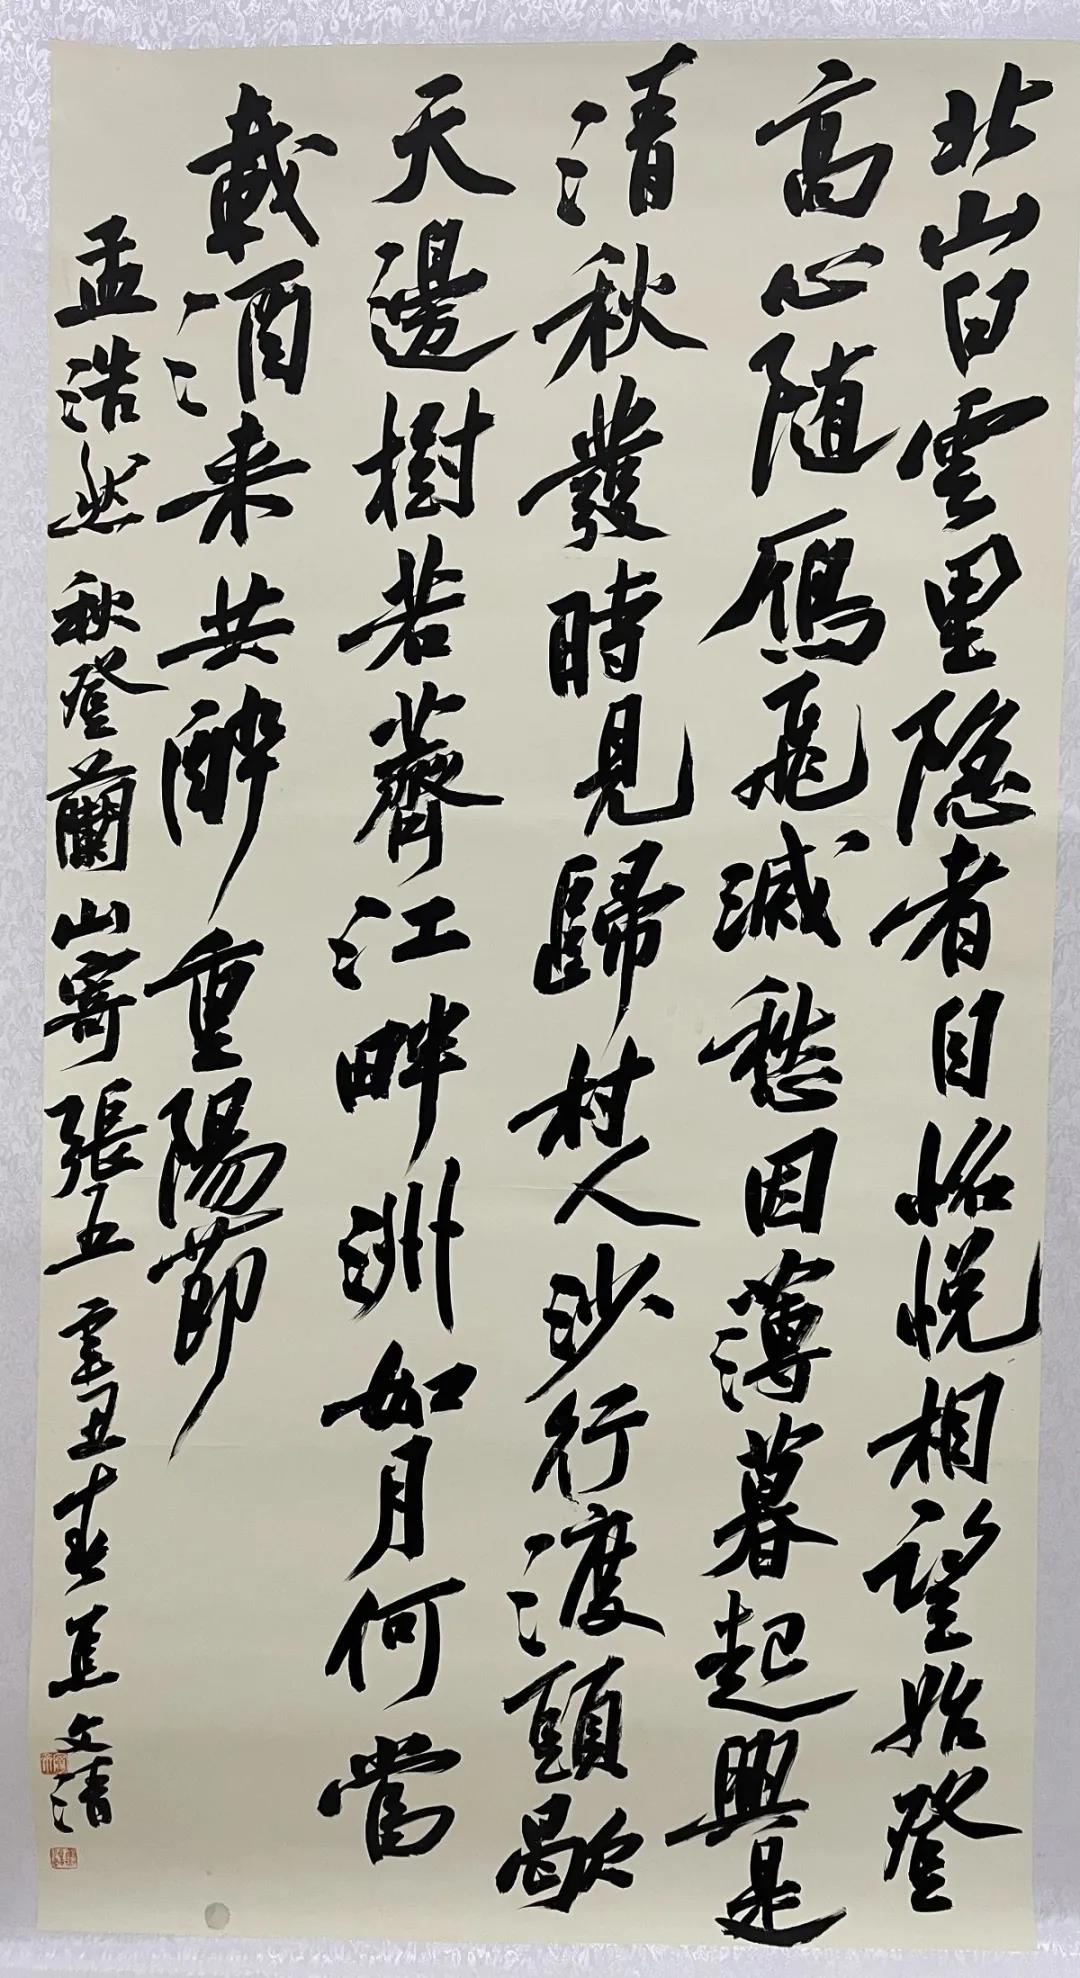 北山白雲里隐者自怡悦相望始登
高心随鴈飛滅愁因薄暮起興是
清秋發時見歸村人沙行渡頭歇
天邊樹若薺江畔洲如月何當
載酒来共醉重陽節
孟浩然 秋登蘭山寄張五 辛丑春 文清